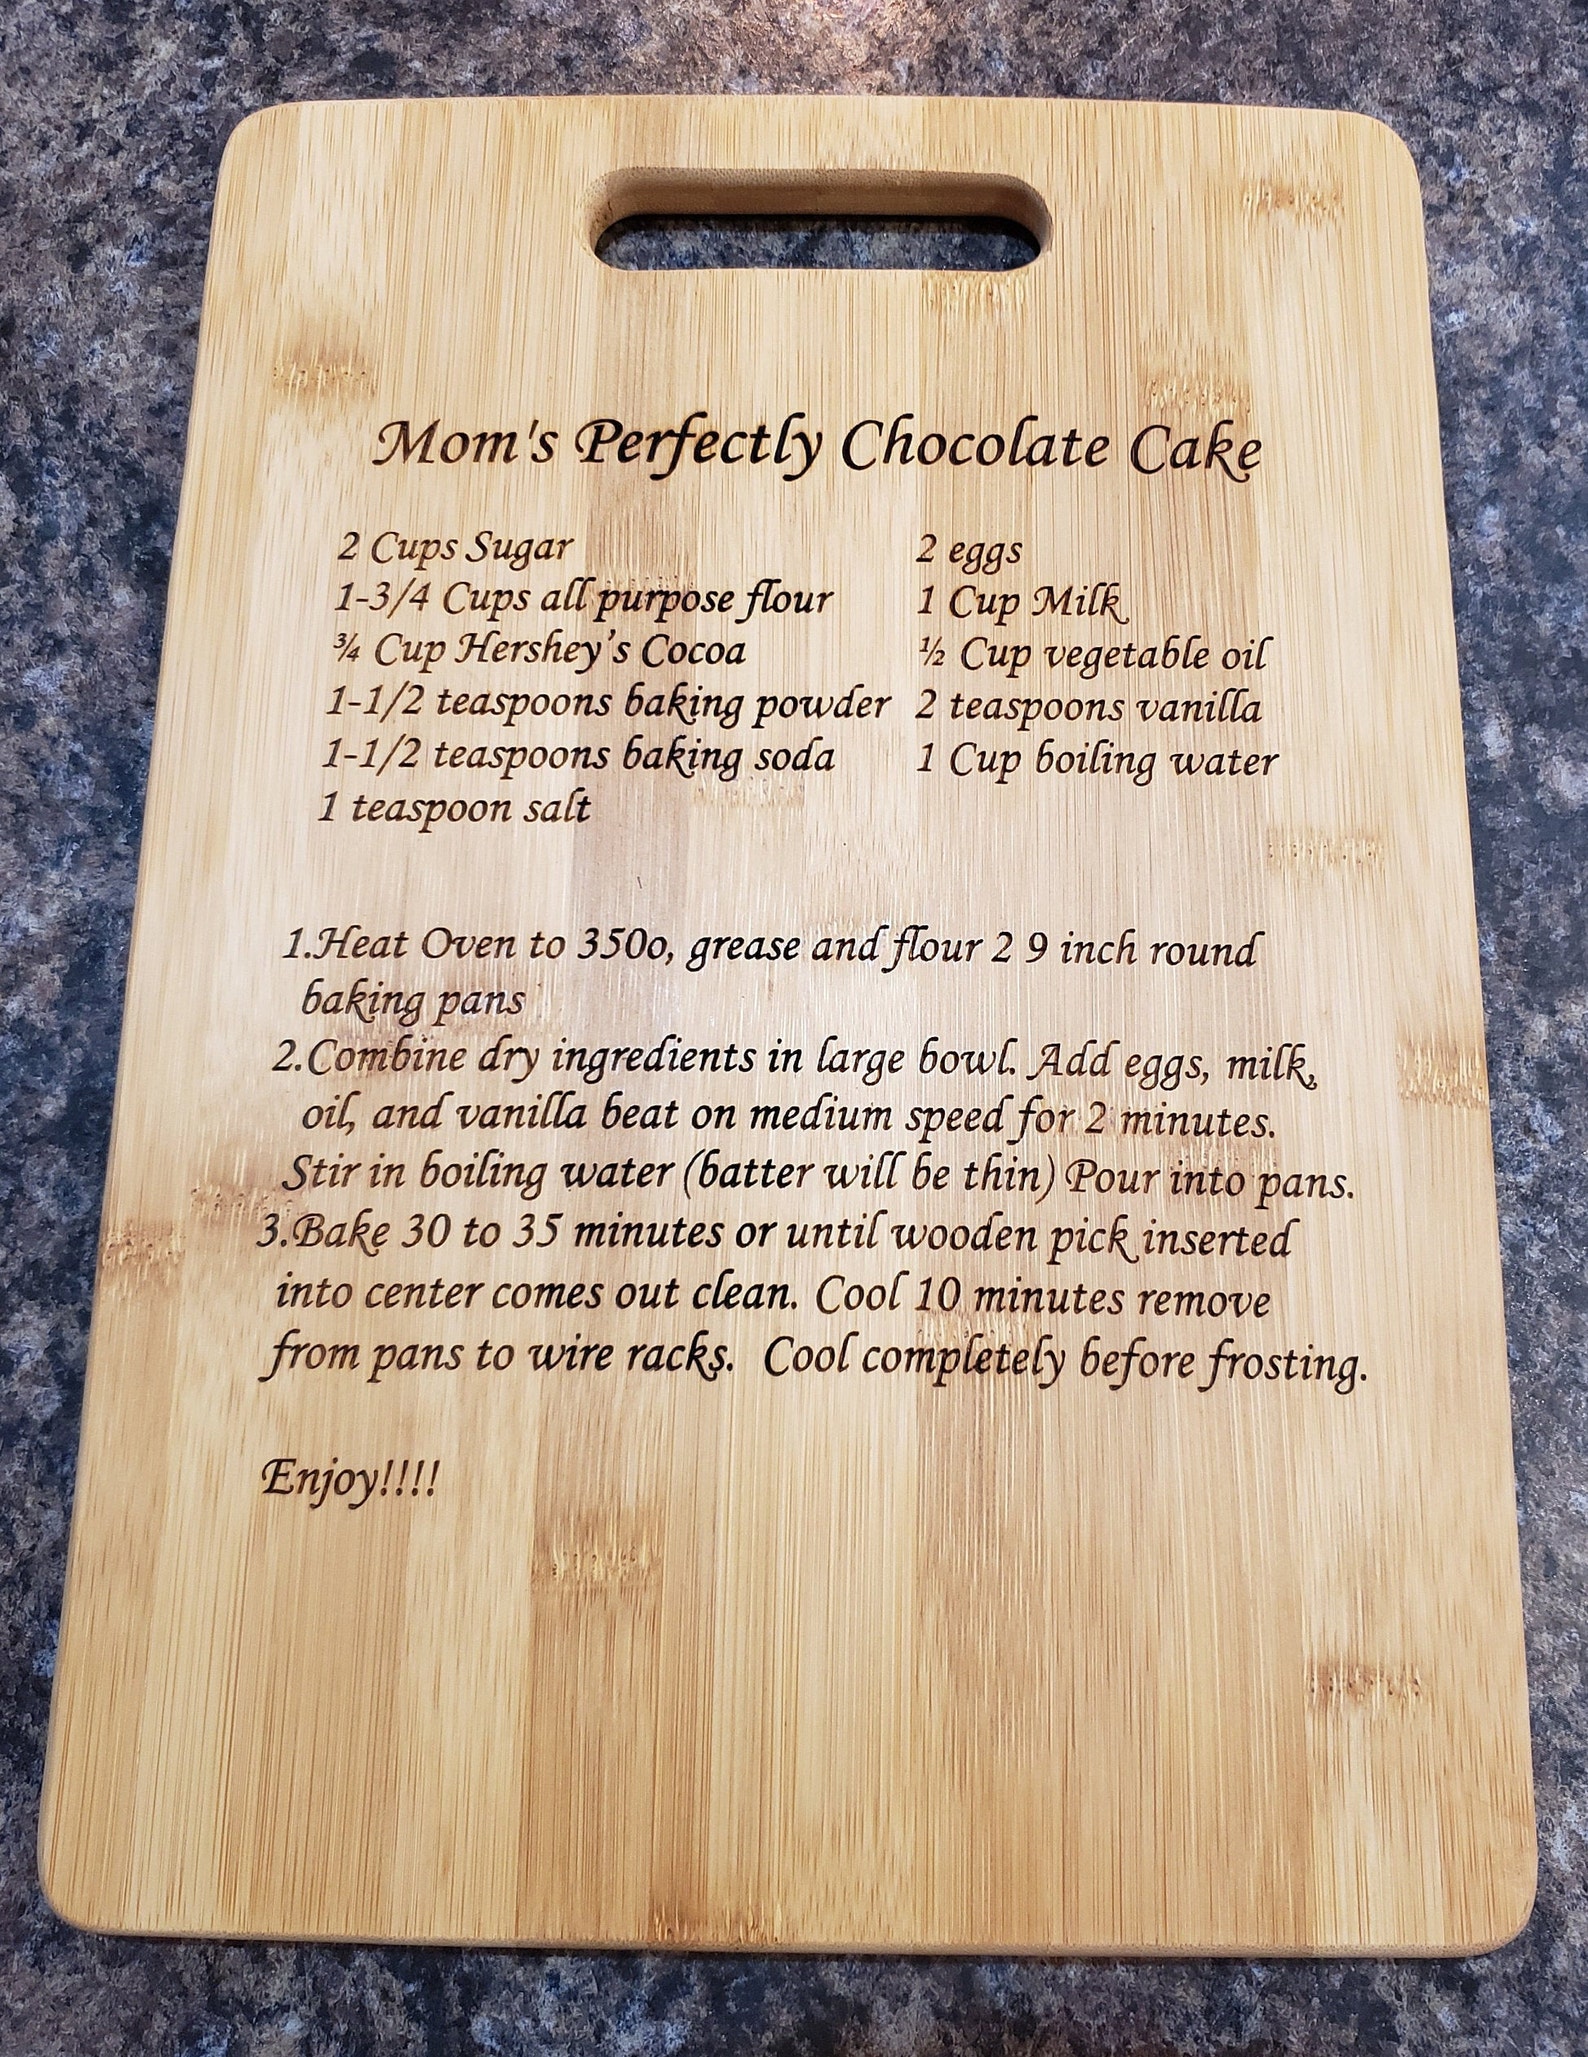 Mom's Perfectly Chocolate Cake
2 Cups Sugar
1-3/4 Cups all purpose flour
¾ Cup Hershey’s Cocoa
1-1/2 teaspoons baking powder
1-1/2 teaspoons baking soda
1 teaspoon salt
2 eggs
1 Cup Milk
½ Cup vegetable oil
2 teaspoons vanilla
1 Cup boiling water
1.Heat Oven to 350o, grease and flour 2 9 inch round
baking pans
2.Combine dry ingredients in large bowl. Add eggs, milk,
oil, and vanilla beat on medium speed for 2 minutes.
Stir in boiling water (batter will be thin) Pour into pans.
3.Bake 30 to 35 minutes or until wooden pick inserted
into center comes out clean. Cool 10 minutes remove
from pans to wire racks.  Cool completely before frosting.
Enjoy!!!!